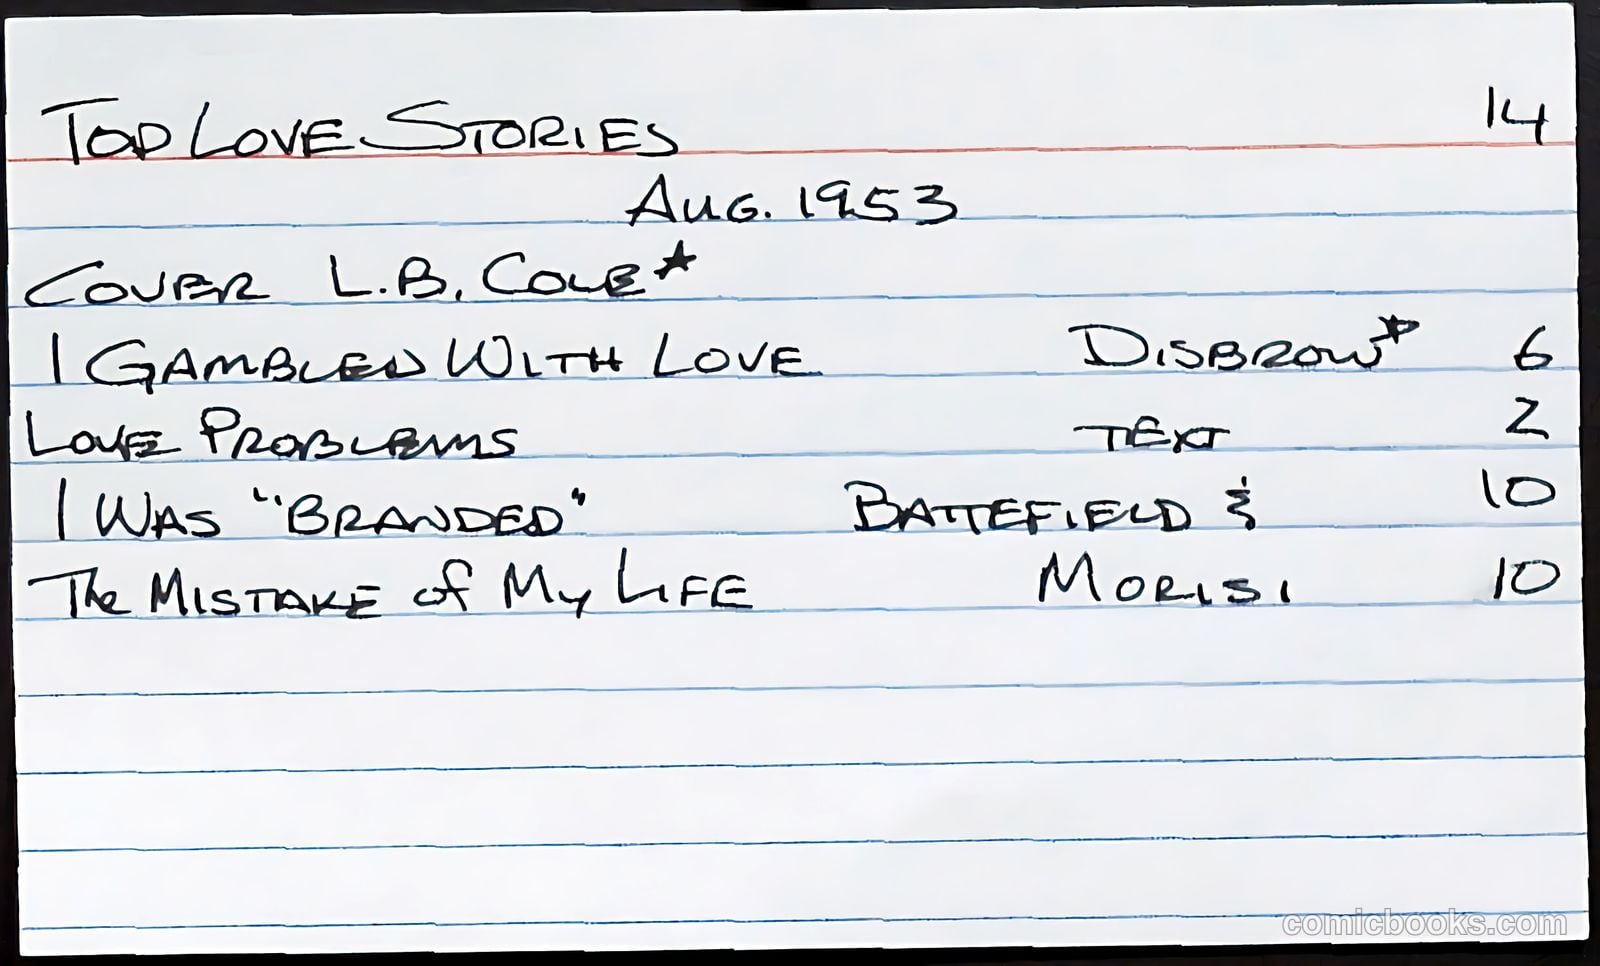 TOP LOVE STORIES 14
AUG. 1953
COVER L.B. COLE★
I GAMBLED WITH LOVE DISBROW★ 6
LOVE PROBLEMS TEXT 2
I WAS "BRANDED" BATTEFIELD & 10
The MISTAKE of MY LIFE MORISI 10
comicbooks.com